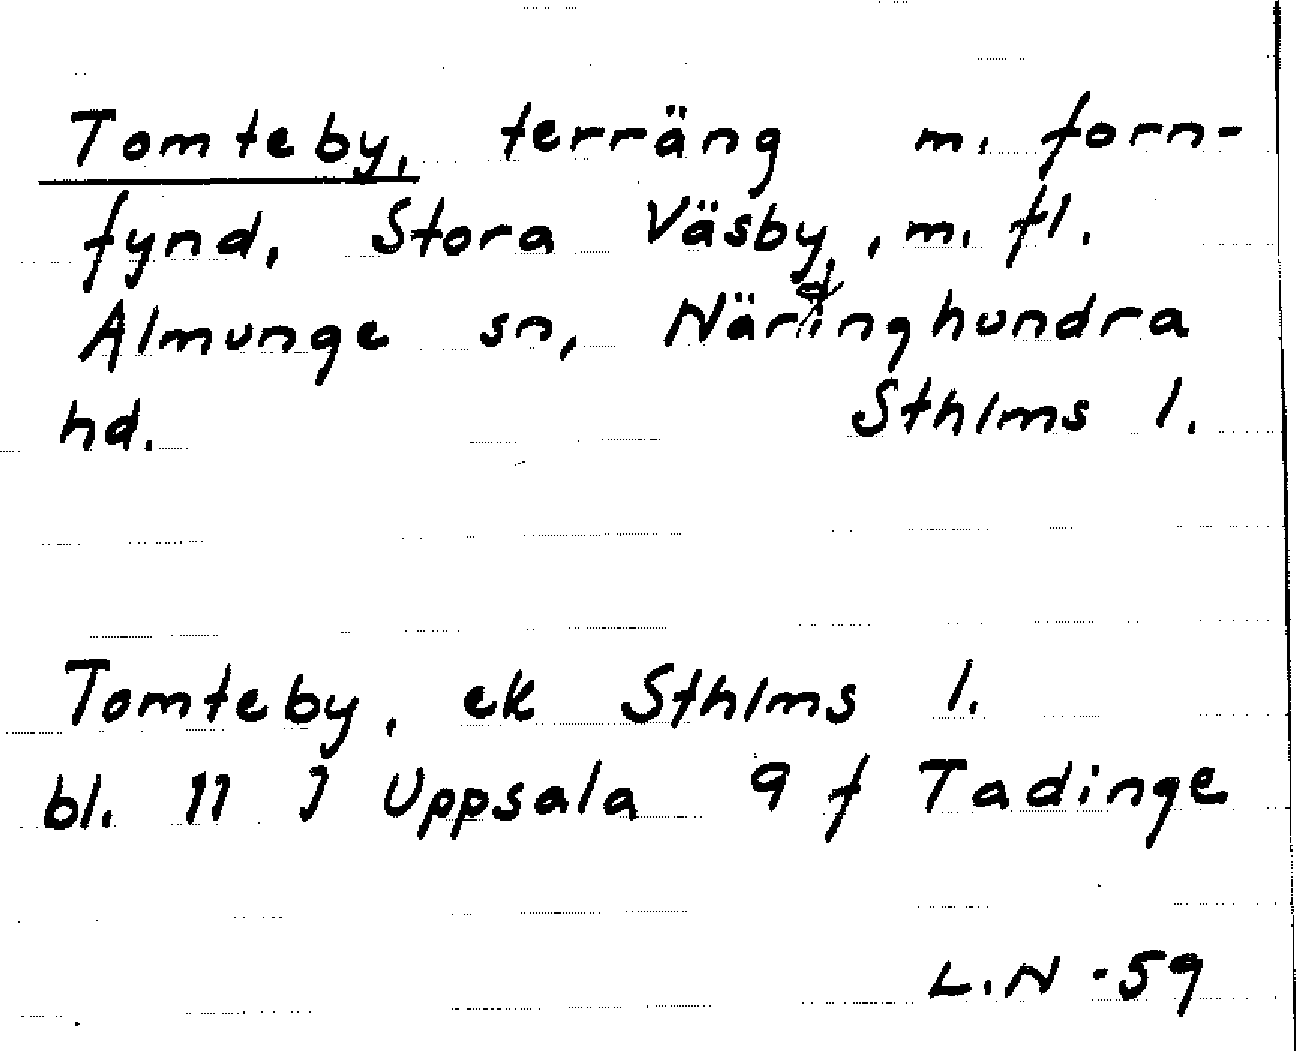 Tomteby, terräng m. forn-
fynd, Stora Väsby, m. fl.
Almunge sn, Närdinghundra
hd. Sthlms l.
Tomteby, ek Sthlms l.
bl. 11 J Uppsala 9 f Tadinge
L.N -59